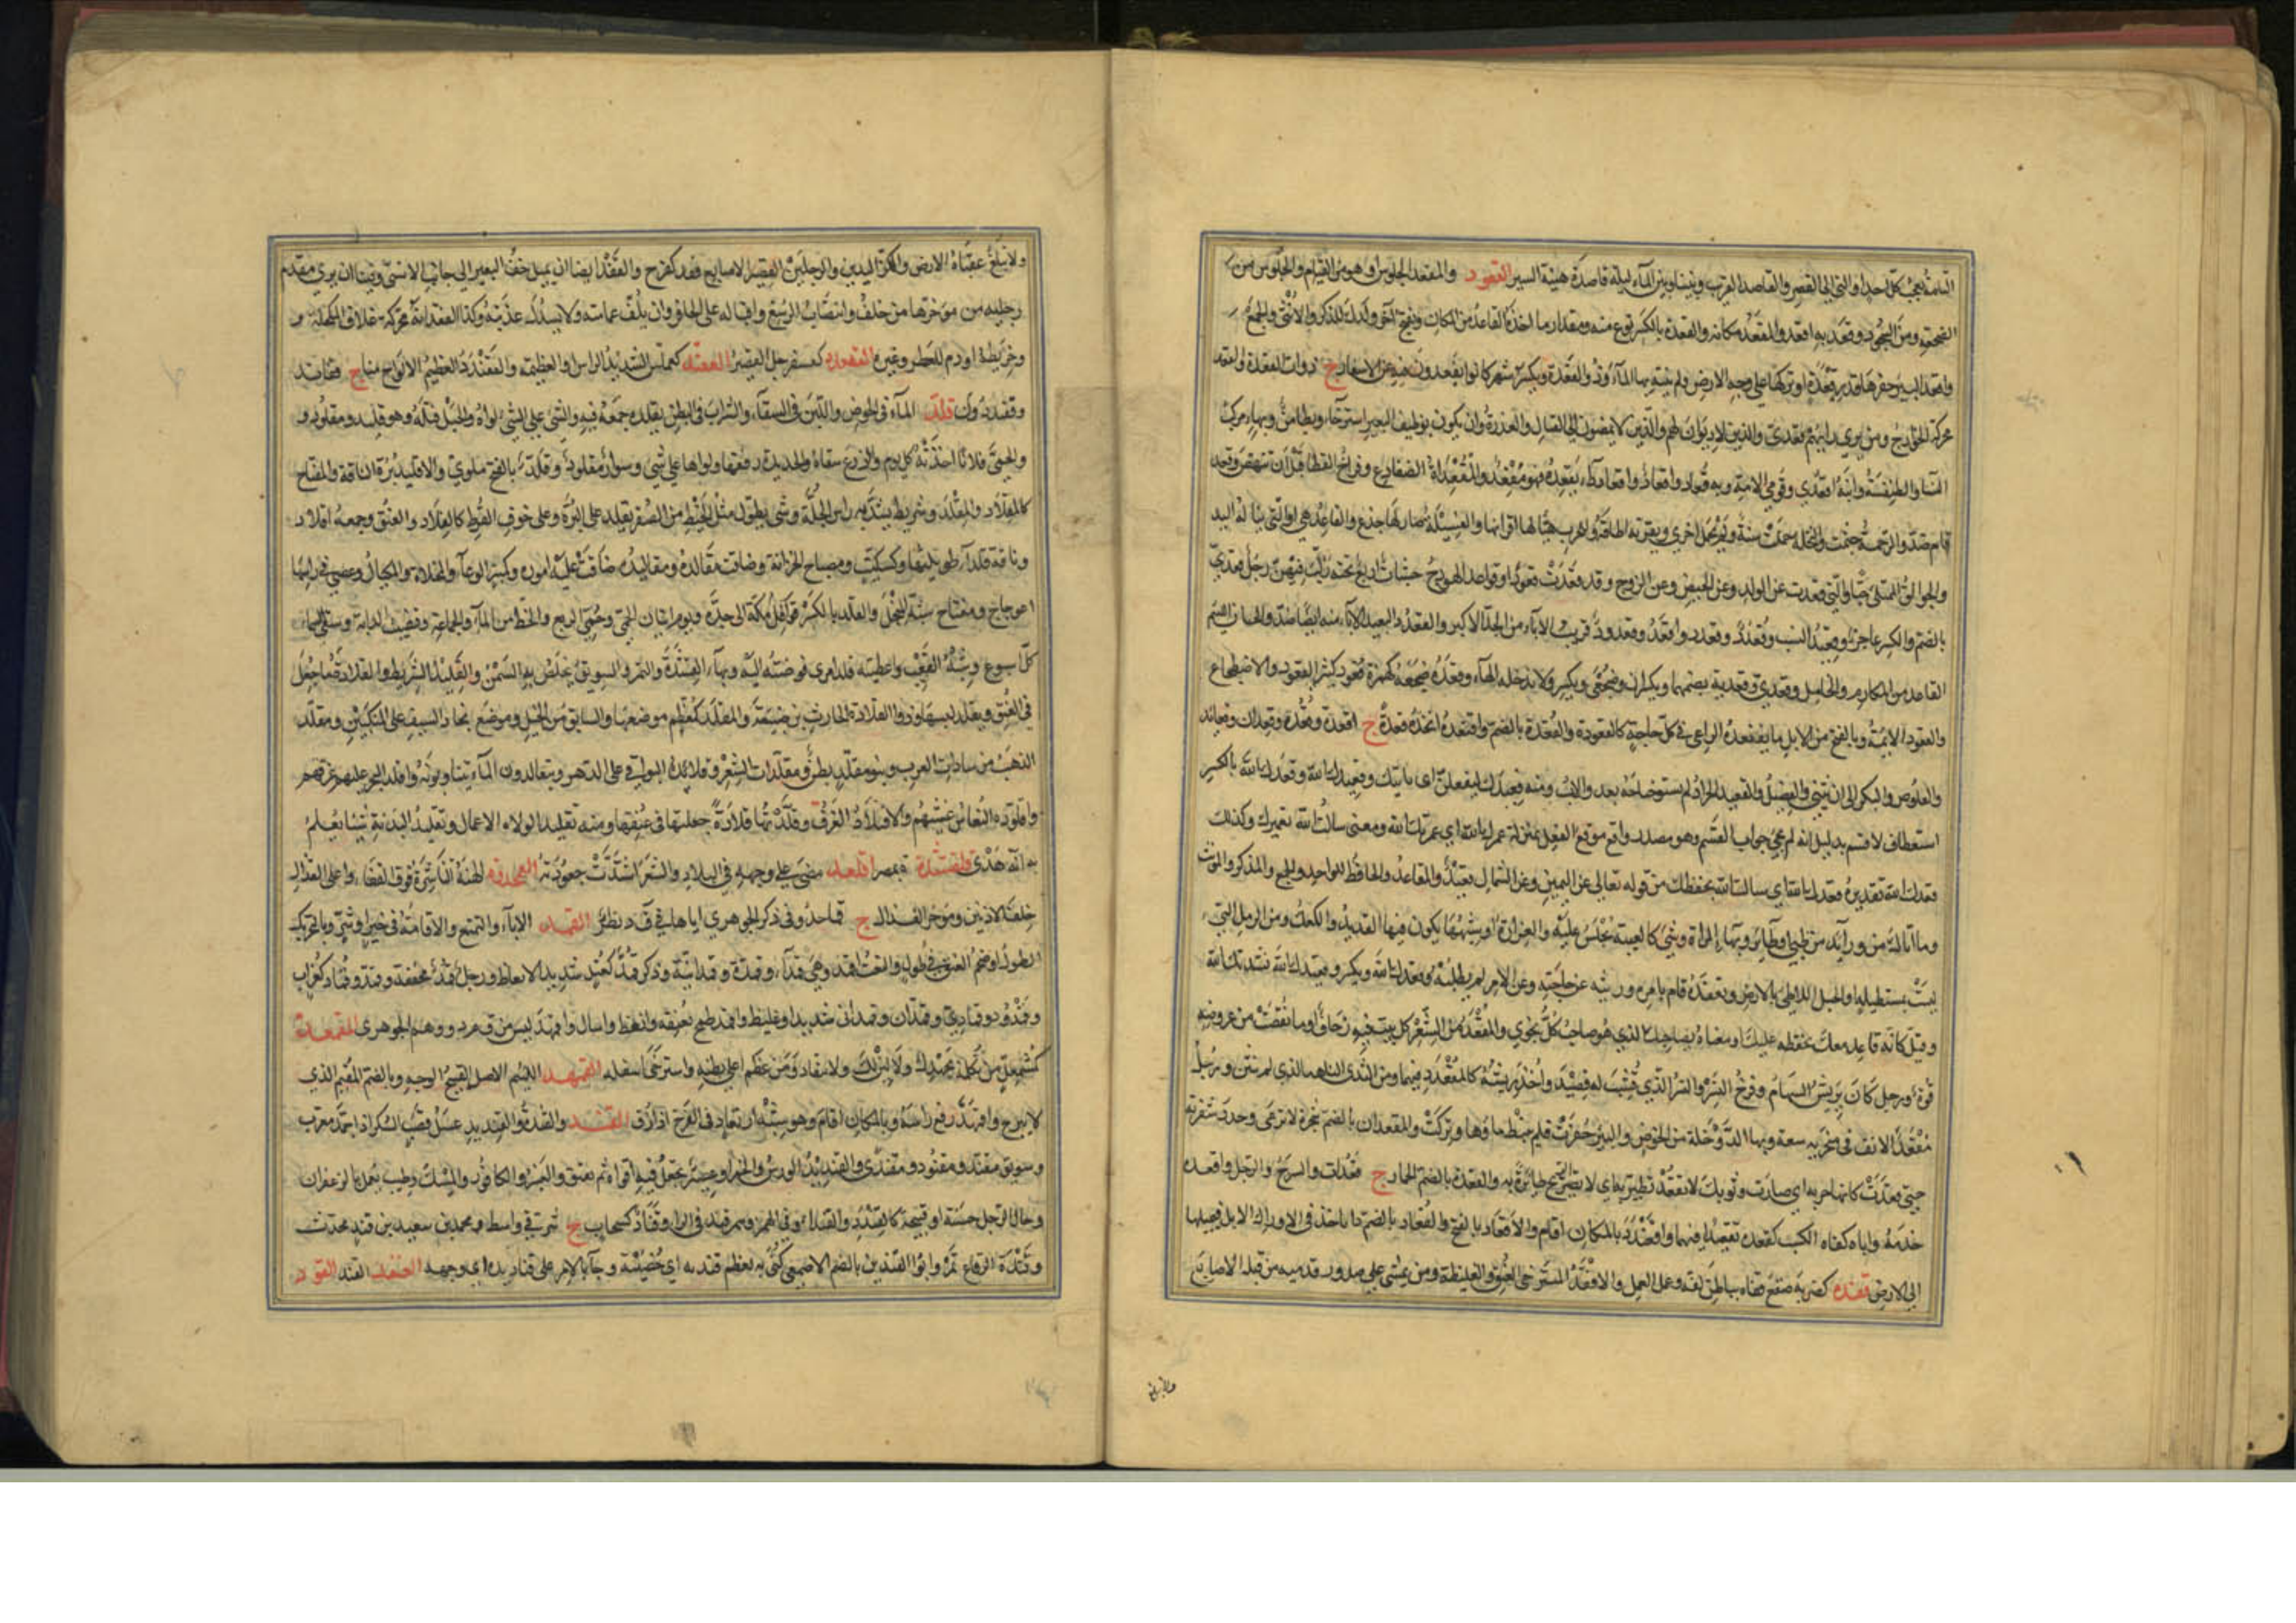 التامة بيض كل احد او التي الى القصر والقاصد القريب وبيننا وبين الماء ليلة قاصدة هينة السير القعود والمقعد الجلوس او هو من القيام والجلوس من
الضجعة ومن السجود وقعد به اقعده والمقعد مكانه والقعدة بالكسر نوع منه ومقدار ما اخذه القاعد من المكان ويفتح وآخر ولدك للذكر والانثى والجمع
واقعد البئر حفرها قدر قعدة او تركها على وجه الارض ولم ينته بها الماء وذو القعدة ويكسر شهر كانوا يقعدون فيه عن الاسفار ج ذوات القعدة والقعد
محركة الخوارج ومن يرى رايهم قعدي والذين لا ديوان لهم والذين لا يمضون الى القتال والعذرة وان يكون بوظيف البعير استرخاء وتطامن وبهاء مركب
النساء والطنفسة وابنة اقعدي وقومي الامة وبه قعاد واقعاد داء يقعده فهو مقعد والمقعدات الضفادع وفراخ القطا قبل ان تنهض وقعد
قام ضد والرخمة جثمت والنخلة حملت سنة ولم تحمل اخرى وبقرنه اطاقه وللحرب هيا لها اقرانها والفسيلة صار لها جذع والقاعد هي او التي تنالها اليد
والجوالق الممتلئ حبا والتي قعدت عن الولد وعن الحيض وعن الزوج وقد قعدت قعودا وقواعد الهودج خشبات اربع تحته ركب فيهن ورجل قعدي
بالضم والكسر عاجز وقعيد النسب وقعدد وقعدد واقعد وقعدود قريب الآباء من الجد الاكبر والقعدد البعيد الآباء منه ايضا ضد والجبان اللئيم
القاعد عن المكارم والخامل وقعدي وقعدية بضمهما ويكسران وضجعي ويكسر ولا تدخله الهاء وقعدة ضجعة كهمزة كثير القعود والاضطجاع
والقعود الايمة وبالفتح من الابل ما يقتعده الراعي في كل حاجة كالقعودة والقعدة بالضم واقتعده اتخذه قعدة ج اقعدة وقعد وقعدان وقعائد
والقلوص والبكر الى ان يثني والفصيل والقعيد الجراد لم يستو جناحه بعد والاب ومنه قعيدك لتفعلن اي بابيك وقعيدك الله وقعدك الله بالكسر
استعطاف لا قسم بدليل انه لم يجئ جواب القسم وهو مصدر واقع موقع الفعل بمنزلة عمرك الله اي عمرتك الله ومعنى سالت الله تعميرك وكذلك
قعدك الله تقديره قعدتك الله اي سالت الله بحفظك من قوله تعالى عن اليمين وعن الشمال قعيد والمقاعد والحافظ للواحد والجمع والمذكر والمونث
وما اتاك من ورائك من ظبي او طائر وبهاء المراة وشئ كالعيبة يجلس عليه والغرارة او شبهها يكون فيها القديد والكعك ومن الرمل التي
ليست بمستطيلة او الحبل اللاطئ بالارض وتقعده قام بامره وريثه عن حاجته وعن الامر لم يطلبه وقعدك الله ويكسر وقعيدك الله ناشدتك الله
وقيل كانه قاعد معك بحفظه عليك او معناه بصاحبك الذي هو صاحب كل نجوى والمقعد من الشعر كل بيت فيه زحاف او ما نقصت من عروضه
قوة ورجل كان يريش السهام وفرخ النسر والنسر الذي قشب له فصيد واخذ ريشه كالمقعدد فيهما ومن الثدي الناهد الذي لم ينثن ورجل
مقعد الانف في منخريه سعة وبهاء الدوخلة من الخوص والبئر حفرت فلم ينبط ماؤها وتركت والمقعدان بالضم شجرة لا ترعى وحدد شفرته
حتى قعدت كانها حربة اي صارت وثوبك لا تقعد تطير به اي لا تصير الريح طائرة به والقعدة بالضم الحمار ج قعدات والسرج والرحل واقعده
خدمه واباه كفاه الكسب كقعده تقعيدا فيهما واقعندد بالمكان اقام والاقعاد بالفتح والقعاد بالضم داء ياخذ في اوراك الابل فيميلها
الى الارض قفده كضربه صفع قفاه بباطن كفه وعمل العمل والاقفد المسترخي العنق والغليظه ومن يمشي على صدور قدميه من قبل الاصابع
ولا تبلغ
ولا تبلغ عقباه الارض والكز اليدين والرجلين القصير الاصابع قفد كفرح والقفد ايضا ان يميل خف البعير الى جانب الانسي وفينا ان يرى مقدم
رجليه من مؤخرها من خلف وانتصاب الرسغ واقباله على الحافر وان يلف عمامته ولا يسدل عذبته وكذا القفدانة محركة غلاف المكحلة و
وخريطة من ادم للعطر وغيره القفعدد كسفرجل القصير القفند كعملس الشديد الراس والعظيمه والقفندد العظيم الالواح منا ج قفاند
وقفنددون قلد الماء في الحوض واللبن في السقاء والشراب في البطن يقلده جمعه فيه والشئ على الشئ لواه والحبل فتله فهو قليد ومقلود و
والحمى فلانا اخذته كل يوم والزرع سقاه والحديدة رققها ولواها على شئ وسوار مقلود وقلد بالفتح ملوي والاقليد برة الناقة والمفتاح
كالمقلاد والمقلد وشريط يشد به راس الجلة وشئ يطول مثل الخيط من الصفر يقلد على البرة وعلى خوق القرط كالقلاد والعنق وجمعه اقلاد
وناقة قلداء طويلتها وكسكيت ومصباح الخزانة وضاقت مقالده ومقاليده ضاقت عليه اموره وكمنبر الوعاء والمخلاة والمكيال وعصى في راسها
اعوجاج ومفتاح شبه المنجل والقلد بالكسر قوافل مكة الى جدة ويوم اتيان الحمى وحمى الربع والحظ من الماء والجماعة وقضيب الدابة وسقي السماء
كل اسبوع وشبه القعب واعطيته قلد امري فوضته اليه وبهاء القشدة والتمر والسويق يخلص به السمن والقليد الشريط والقلادة ما جعل
في العنق وتقلد لبسها وذو القلادة الحارث بن ضبيعة والمقلد كمعظم موضعها والسابق من الخيل وموضع نجاد السيف على المنكبين ومقلد
الذهب من سادات العرب وبنو مقلد بطن ومقلدات الشعر وقلائده البواقي على الدهر ويتقالدون الماء يتناوبونه واقلد البحر عليهم غرقهم
واقلوده النعاس غشيهم والاقتلاد الغرف وقلدتها قلادة جعلتها في عنقها ومنه تقليد الولاة الاعمال وتقليد البدنة شيئا يعلم
به انه هدي قلقشندة ة بمصر اقلعد مضى على وجهه في البلاد والشعر اشتدت جعودته القمحدوة الهنة الناشزة فوق القفا واعلى القذال
خلف الاذنين ومؤخر القذال ج قماحد وفي ذكر الجوهري اياها في ق ح د نظر القمد الاباء والتمنع والاقامة في خير او شر وبالتحريك
الطول او ضخم العنق في طول والنعت اقمد وهي قمداء وقمدة وقمدانية وذكر قمد كعتل شديد الانعاظ ورجل قمد مخففة وقمد وقماد كغراب
وقمدود وقمادي وقمدان وقمداني شديد او غليظ واقمد طمح بعنقه وانعظ واسال واقمهد ليس من ق م د ووهم الجوهري المقمعد
كمشمعل من تكلمه بجهدك ولا يلين لك ولا ينقاد ومن عظم اعلى بطنه واسترخى اسفله القمهد اللئيم الاصل القبيح الوجه وبالضم المقيم الذي
لا يبرح واقمهد رفع راسه وبالمكان اقام وهو شبه ارتعاد في الفرخ اذا زق القند والقندة والقنديد عسل قصب السكر اذا جمد معرب
وسويق مقند ومقنود ومقندى والقنديد الورس والخمر او عصير يجعل فيه افواه ثم يعتق والعنبر والكافور والمسك وطيب يعمل بالزعفران
وحال الرجل حسنة او قبيحة كالقندد والقنداو في الهمز وسمرقند في الراء وقناد كسحاب ع شرقي واسط ومحمد بن سعيد بن قند محدث
وقندة الرقاع تمر وابو القندين بالضم الاصمعي كني به لعظم قنديه اي خصييه وجاء بالامر على قناديده اي وجهه القنفد القنفذ القود